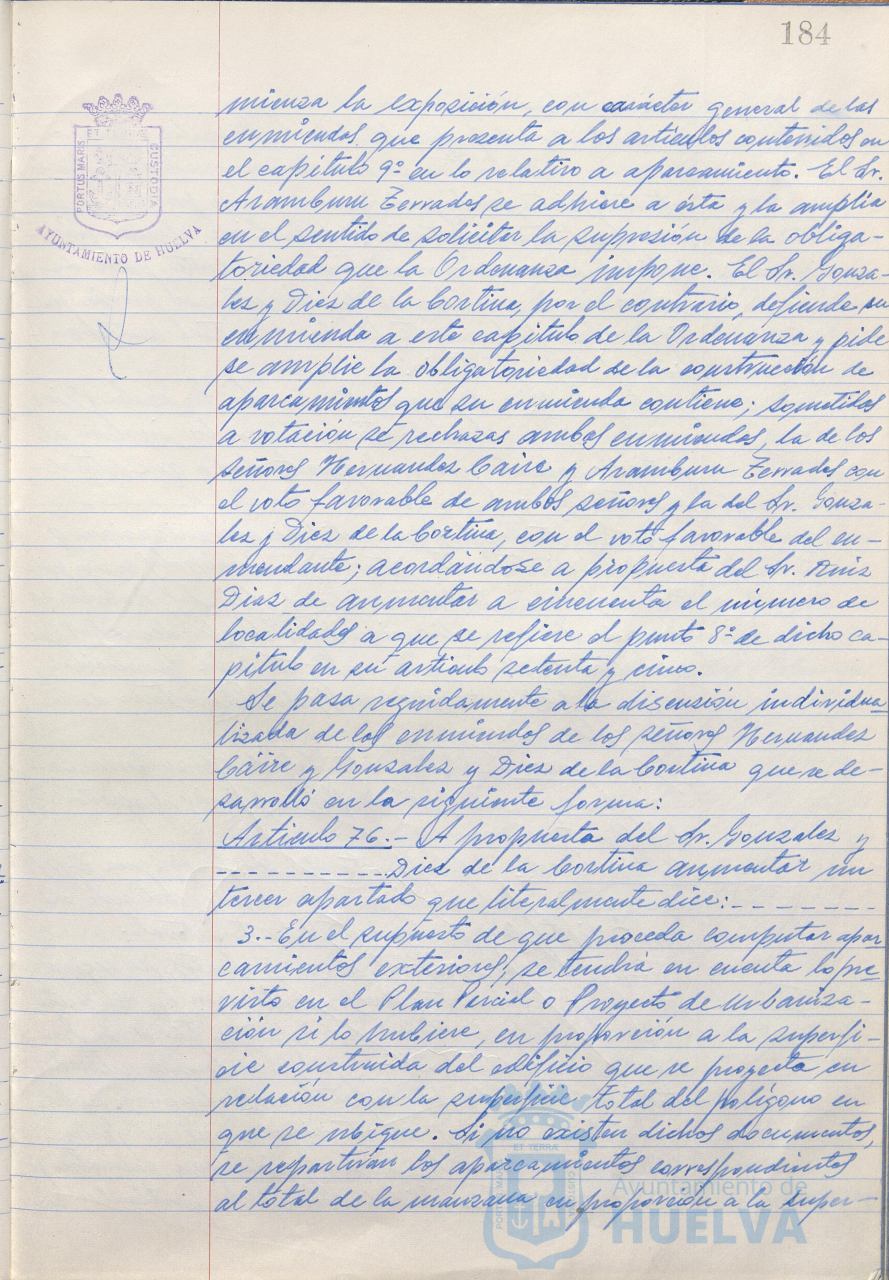 184
ET TERRA
PORTUS MARIS
CUSTODIA
AYUNTAMIENTO DE HUELVA
mienza la exposición, con carácter general de las
enmiendas que presenta a los artículos contenidos en
el capítulo 9º en lo relativo a aparcamiento. El Sr.
Aramburu Terrades se adhiere a ésta y la amplia
en el sentido de solicitar la supresión de la obliga-
toriedad que la Ordenanza impone. El Sr. Gonza-
lez y Diez de la Cortina, por el contrario, defiende su
enmienda a este capitulo de la Ordenanza y pide
se amplie la obligatoriedad de la construcción de
aparcamientos que su enmienda contiene; sometidas
a votación se rechazas ambas enmiendas, la de los
señores Hernandez Caire y Aramburu Terrades con
el voto favorable de ambos señores y la del Sr. Gonza-
lez y Diez de la Cortina, con el voto favorable del en-
mendante; acordándose a propuesta del Sr. Ruiz
Diaz de aumentar a cincuenta el número de
localidades a que se refiere el punto 8º de dicho ca-
pitulo en su articulo setenta y cinco.
Se pasa seguidamente a la discusión individua
lizada de las enmiendas de los señores Hernandez
Caire y Gonzalez y Diez de la Cortina que se de-
sarrolló en la siguiente forma:
Articulo 76.- A propuesta del Sr. Gonzalez y
----------Diez de la Cortina aumentar un
tercer apartado que literalmente dice:-------
3.- En el supuesto de que proceda computar apar
camientos exteriores, se tendrá en cuenta lo pre
visto en el Plan Parcial o Proyecto de Urbaniza-
ción si lo hubiere, en proporción a la superfi-
cie construida del edificio que se proyecta en
relación con la superficie total del polígono en
que se ubique. Si no existen dichos documentos,
se repartirán los aparcamientos correspondientes
al total de la manzana en proporción a la super-
ET TERRA
Ayuntamiento de
HUELVA